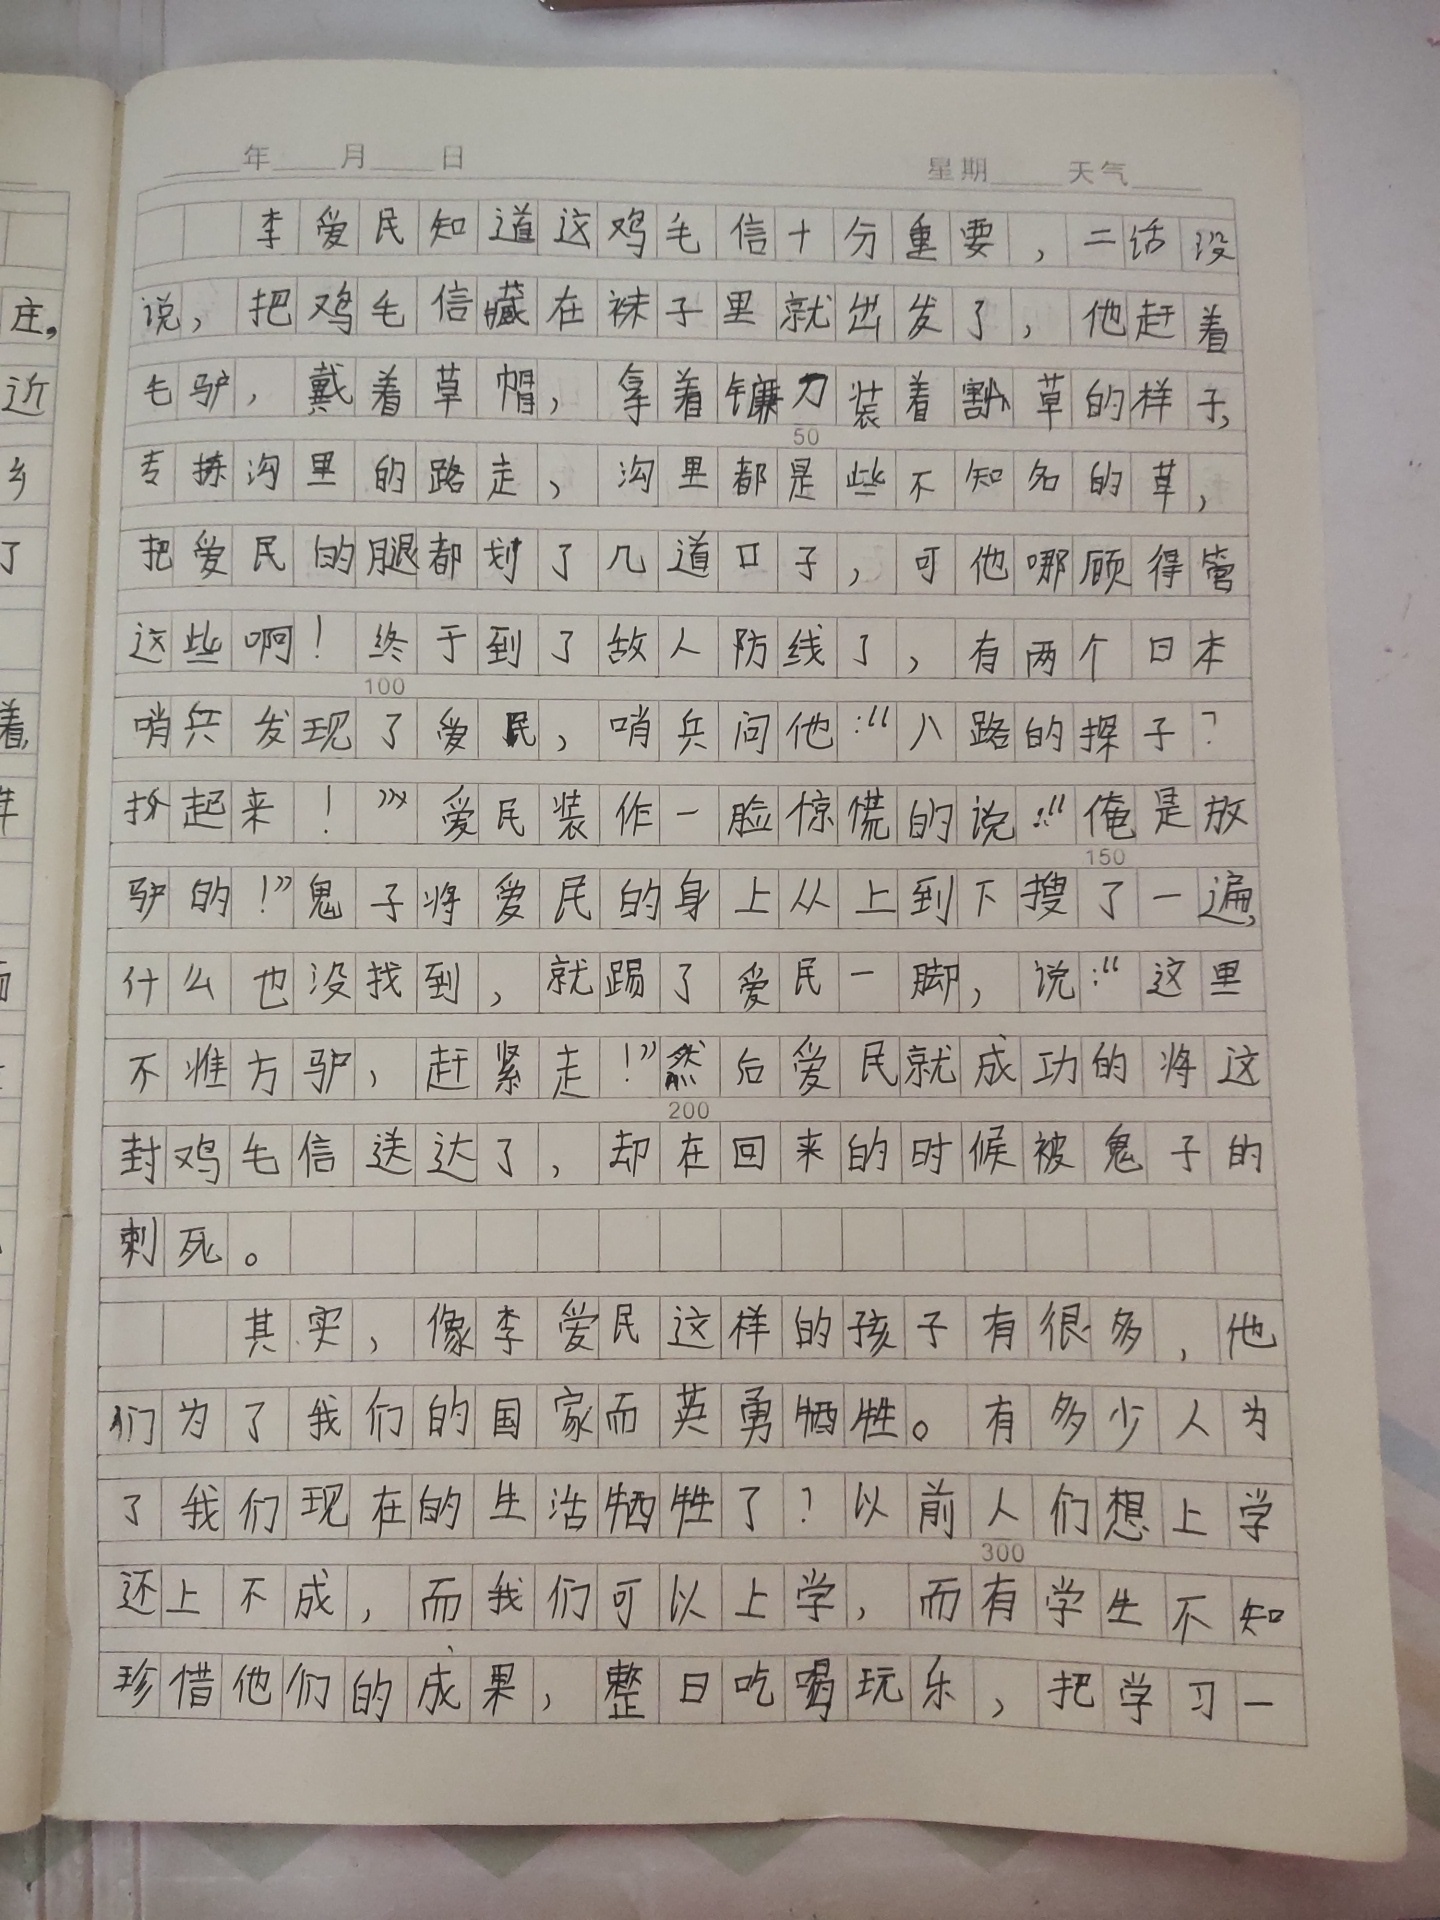 年 月 日 星期 天气
李爱民知道这鸡毛信十分重要，二话没
庄。
说，把鸡毛信藏在袜子里就出发了，他赶着
近
毛驴，戴着草帽，拿着镰刀装着割草的样子，
50
乡
专拣沟里的路走，沟里都是些不知名的草，
了
把爱民的腿都划了几道口子，可他哪顾得管
这些啊！终于到了敌人防线了，有两个日本
100
着，
哨兵发现了爱民，哨兵问他：“八路的探子？
起来！”爱民装作一脸惊慌的说：“俺是放
150
驴的！”鬼子将爱民的身上从上到下搜了一遍，
什么也没找到，就踢了爱民一脚，说：“这里
不准方驴，赶紧走！”然后爱民就成功的将这
200
封鸡毛信送达了，却在回来的时候被鬼子的
刺死。
其实，像李爱民这样的孩子有很多，他
们为了我们的国家而英勇牺牲。有多少人为
了我们现在的生活牺牲了？以前人们想上学
300
还上不成，而我们可以上学，而有学生不知
珍惜他们的成果，整日吃喝玩乐，把学习一